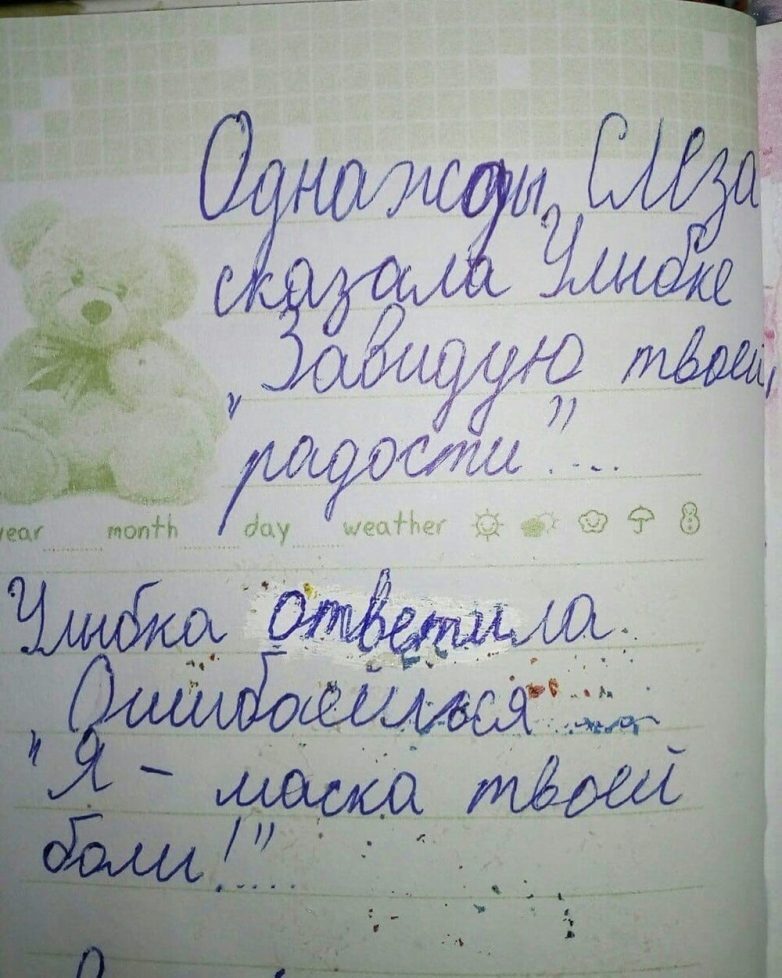 Однажды, Слеза
сказала Улыбке
"Завидую твоей,
радости"....
year month day weather
Улыбка ответила
Ошибаешься
"Я - маска твоей
боли!"....